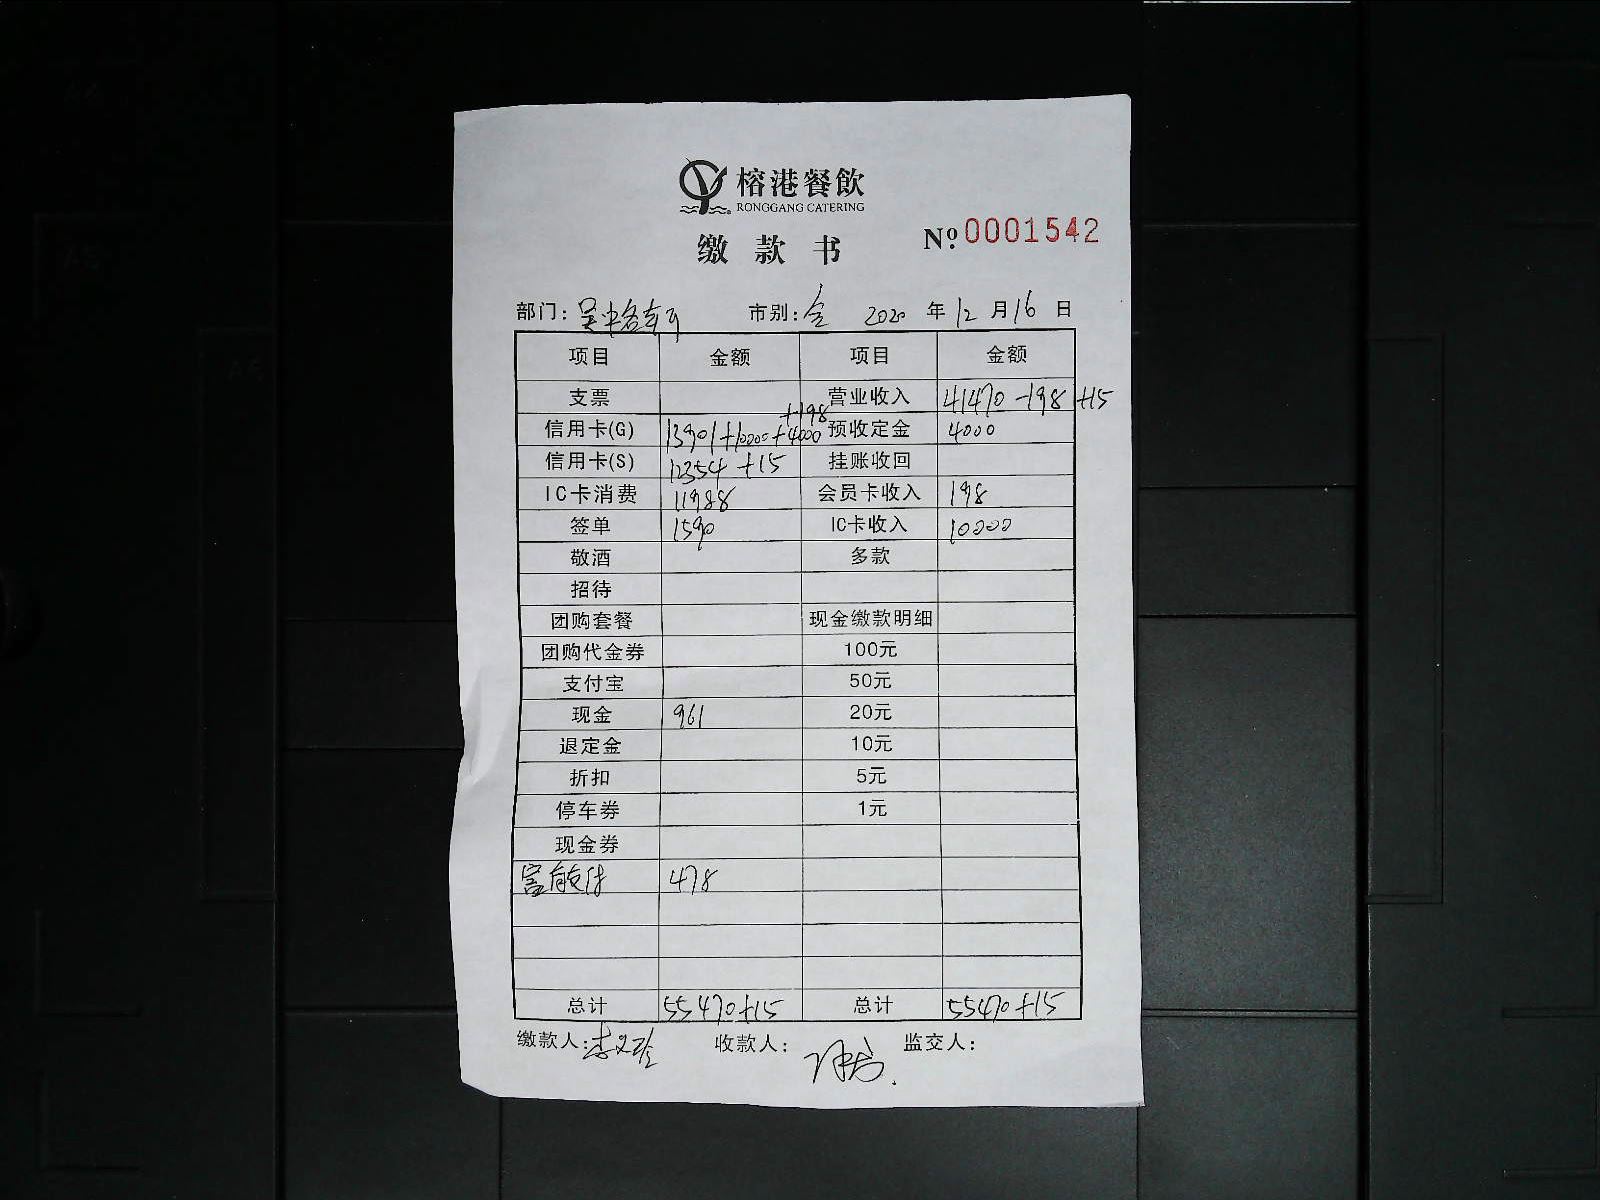 榕港餐飲
RONGGANG CATERING
缴款书 Nº:0001542
部门: 市别:全 2020年12月16日
项目 金额 项目 金额
支票 营业收入 41470-198+15
信用卡(G) 13901+10000+4000+198 预收定金 4000
信用卡(S) 12354+15 挂账收回
IC卡消费 11988 会员卡收入 198
签单 1590 IC卡收入 10000
敬酒 多款
招待
团购套餐 现金缴款明细
团购代金券 100元
支付宝 50元
现金 961 20元
退定金 10元
折扣 5元
停车券 1元
现金券
富友支付 478
总计 55470+15 总计 55470+15
缴款人: 收款人: 监交人: